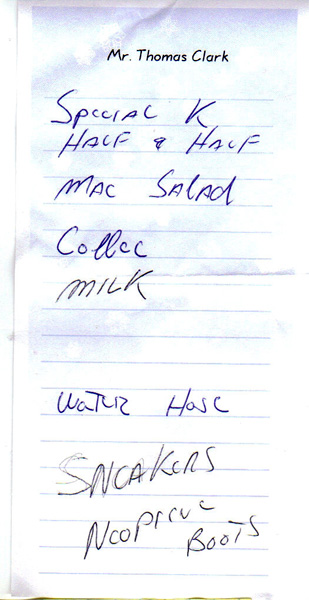 Mr. Thomas Clark
Special K
Half & Half
Mac Salad
Coffee
Milk
Water Hose
Sneakers
Neoprene
Boots